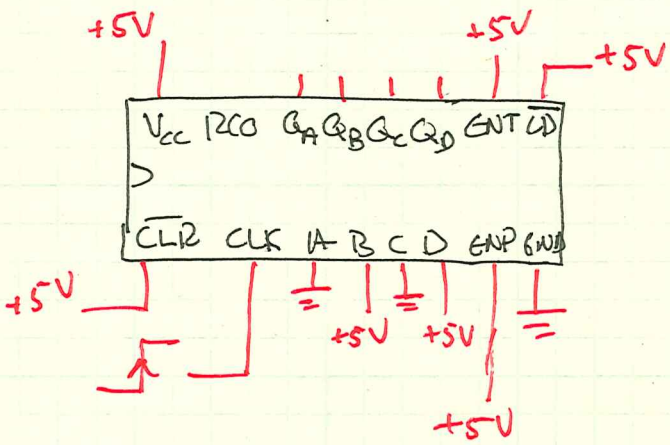 +5V +5V +5V
VCC RCO QA QB QC QD ENT LD
CLR CLK A B C D ENP GND
+5V +5V +5V
+5V